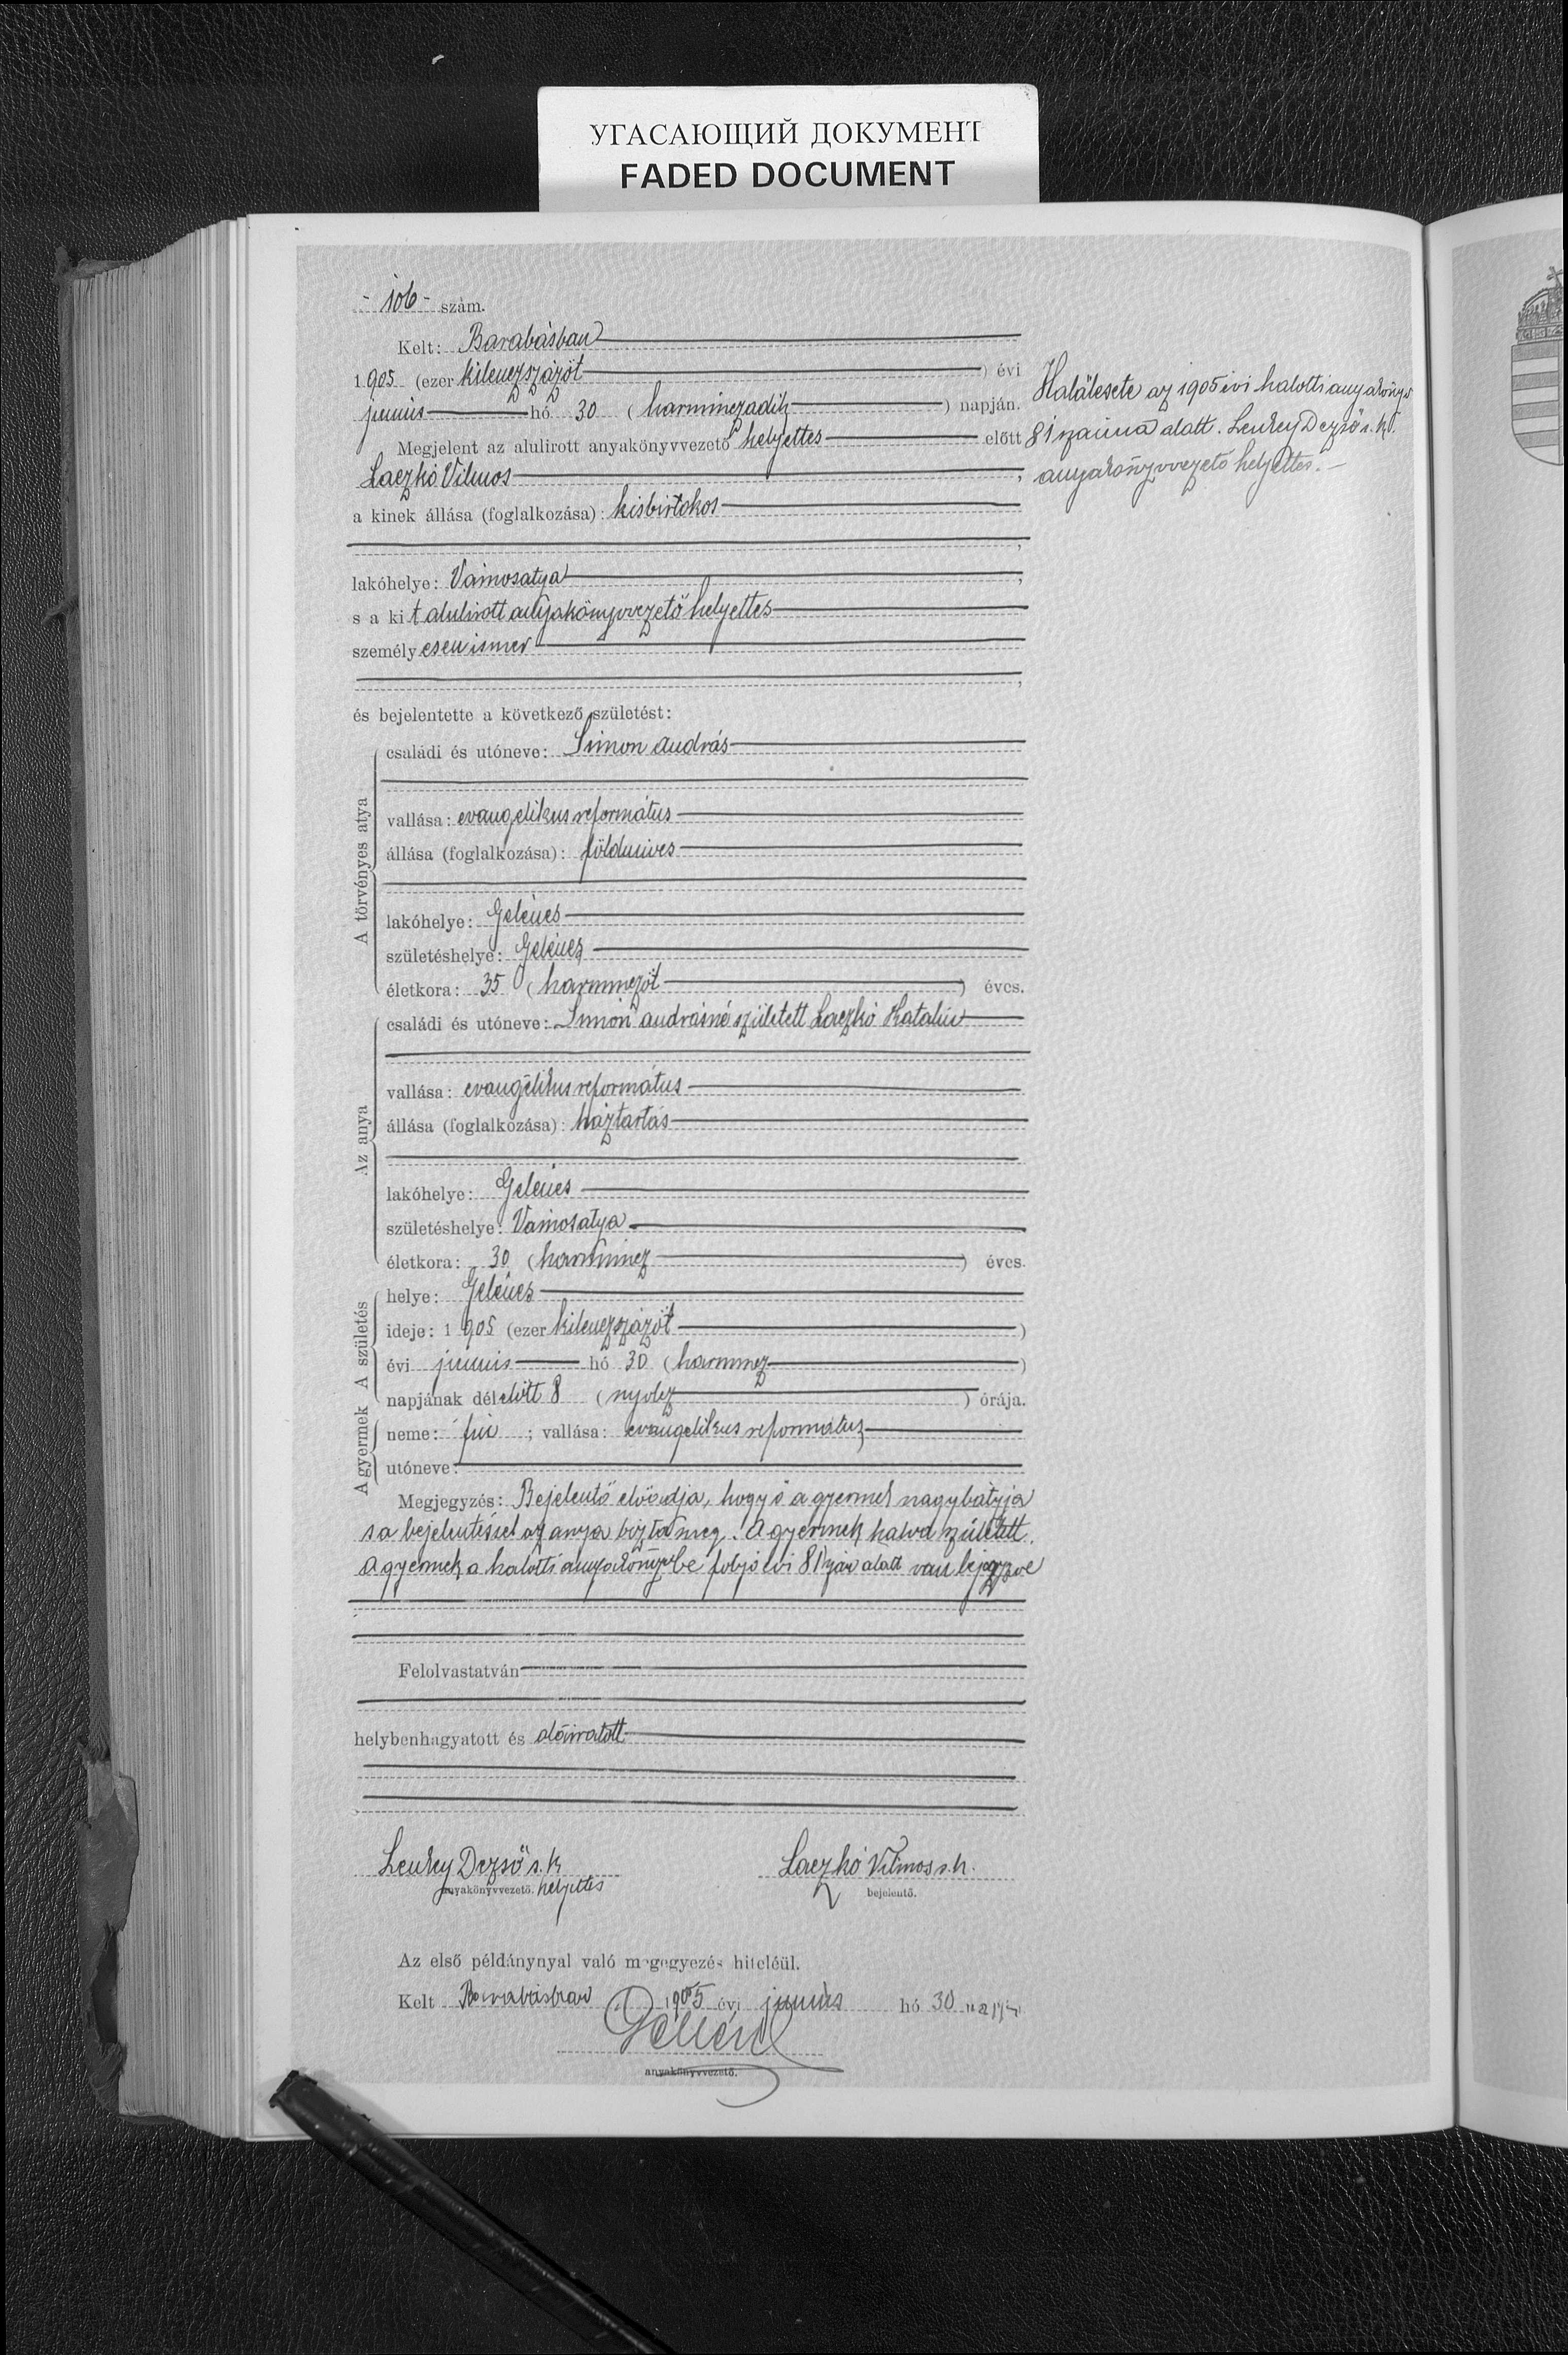 УГАСАЮЩИЙ ДОКУМЕНТ
FADED DOCUMENT
- 106 - szám.
Kelt: Barabásban
1905 (ezer kilenczszázöt) évi
junius hó 30 (harminczadik) napján.
Megjelent az alulirott anyakönyvvezető helyettes előtt
Laczkó Vilmos,
a kinek állása (foglalkozása): kisbirtokos
,
lakóhelye: Vámosatya,
s a kit alulirott anyakönyvvezető helyettes
személyesen ismer
,
és bejelentette a következő születést:
A törvényes atya
családi és utóneve: Simon András
vallása: evangelikus református
állása (foglalkozása): földmives
lakóhelye: Gelénes
születéshelye: Gelénes
életkora: 35 (harminczöt) éves.
Az anya
családi és utóneve: Simon Andrásné született Laczkó Katalin
vallása: evangélikus református
állása (foglalkozása): háztartás
lakóhelye: Gelénes
születéshelye: Vámosatya
életkora: 30 (harmincz) éves.
A születés
helye: Gelénes
ideje: 1905 (ezer kilenczszázöt)
évi junius hó 30 (harmincz)
napjának délelőtt 8 (nyolcz) órája.
A gyermek
neme: fiú; vallása: evangelikus református
utóneve:
Megjegyzés: Bejelentő előadja, hogy ő a gyermek nagybátyja
s a bejelentéssel az anya bizta meg. A gyermek halva született.
A gyermek a halotti anyakönyvbe folyó évi 81 szám alatt van bejegyezve
Felolvastatván
helybenhagyatott és aláiratott
Lenkey Dezső s. k.
anyakönyvvezető. helyettes
Laczkó Vilmos s. k.
bejelentő.
Az első példánynyal való megegyezés hiteléül.
Kelt Barabásban 1905 évi junius hó 30 napján
anyakönyvvezető.
Halálesete az 1905 évi halotti anyakönyv
81 száma alatt. Lenkey Dezső s. k.
anyakönyvvezető helyettes.